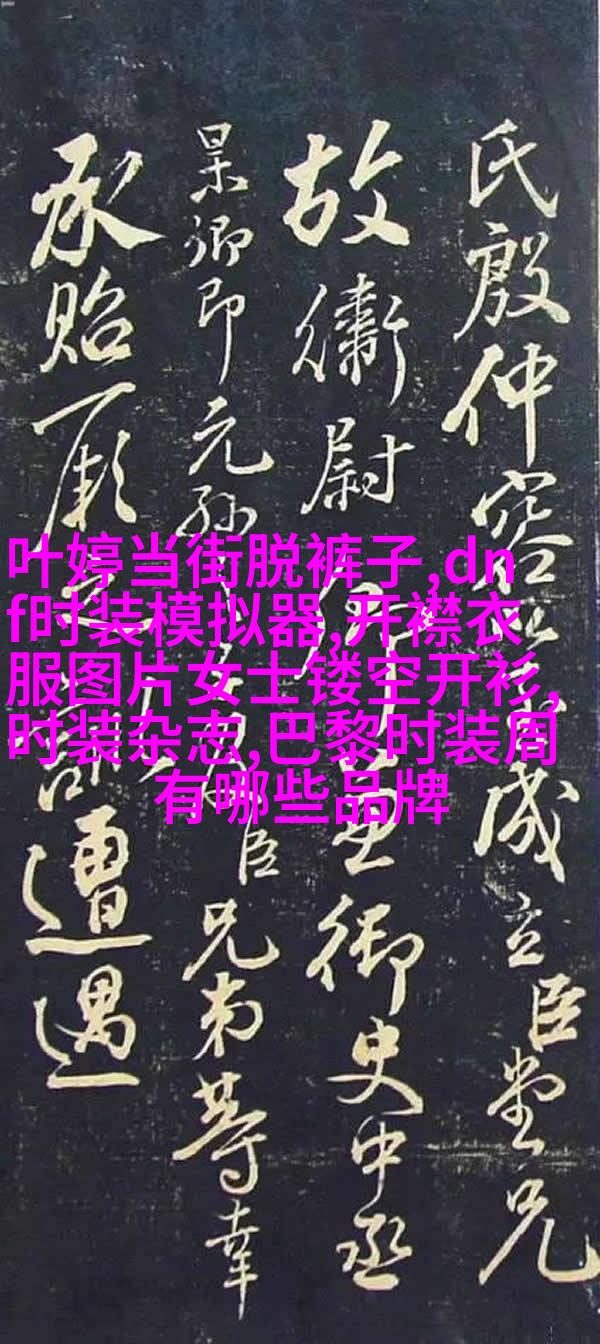 叶婷当街脱裤子,dn
f时装模拟器,开襟衣
服图片女士镂空开衫,
时装杂志,巴黎时装周
有哪些品牌
氏殷仲容成立臣堂兄
故衛尉卿兼御史中丞
杲卿即元孫臣兄弟等幸
承貽厥遭遇